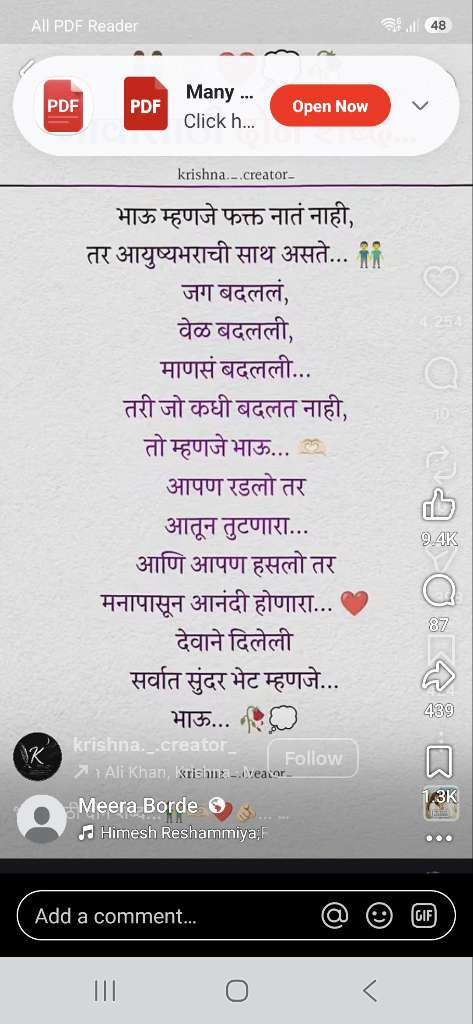 All PDF Reader
48
PDF
PDF
Many ...
Click h...
Open Now
दोन शब्द...
krishna._.creator_
भाऊ म्हणजे फक्त नातं नाही,
तर आयुष्यभराची साथ असते... 👬
जग बदललं,
वेळ बदलली,
माणसं बदलली...
तरी जो कधी बदलत नाही,
तो म्हणजे भाऊ... 🫶🏻
आपण रडलो तर
आतून तुटणारा...
आणि आपण हसलो तर
मनापासून आनंदी होणारा... ❤️
देवाने दिलेली
सर्वात सुंदर भेट म्हणजे...
भाऊ... 🥀💭
4,254
10
9.4K
87
439
1.3K
krishna._.creator_
Follow
Ali Khan, Krishna
krishna._.creator_
Meera Borde
Himesh Reshammiya,F
Add a comment...
GIF